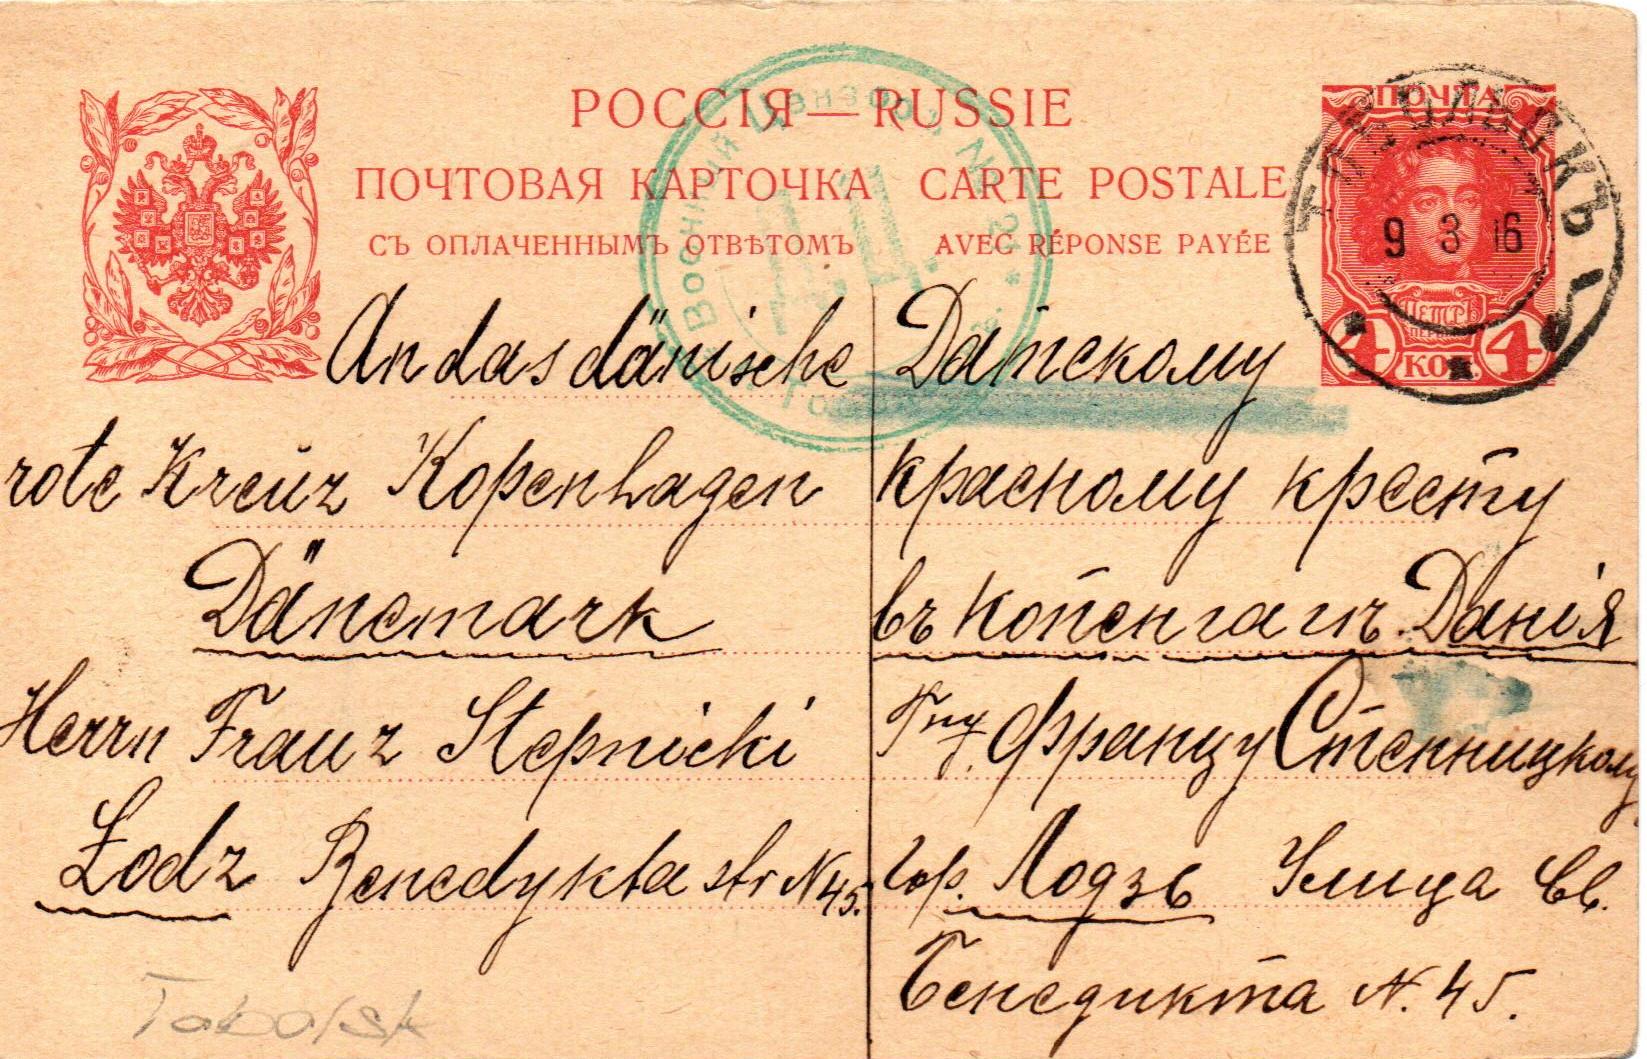 РОССІЯ — RUSSIE
ПОЧТОВАЯ КАРТОЧКА CARTE POSTALE
СЪ ОПЛАЧЕННЫМЪ ОТВѢТОМЪ AVEC RÉPONSE PAYÉE
ПОЧТА
ПЕТРЪ
4 КОП. 4
ТОБОЛЬСКЪ
9 3 16
Военный Цензоръ №
An das dänische
rote Kreuz Kopenhagen
Dänemark
Herrn Franz Stepnicki
Łodz Benedykta str N 45.
Датскому
красному кресту
въ Копенгагнъ. Данія
Гну. Францу Степницкому
Гор. Лодзь Улица Св.
Бенедикта N. 45.
Tobolsk